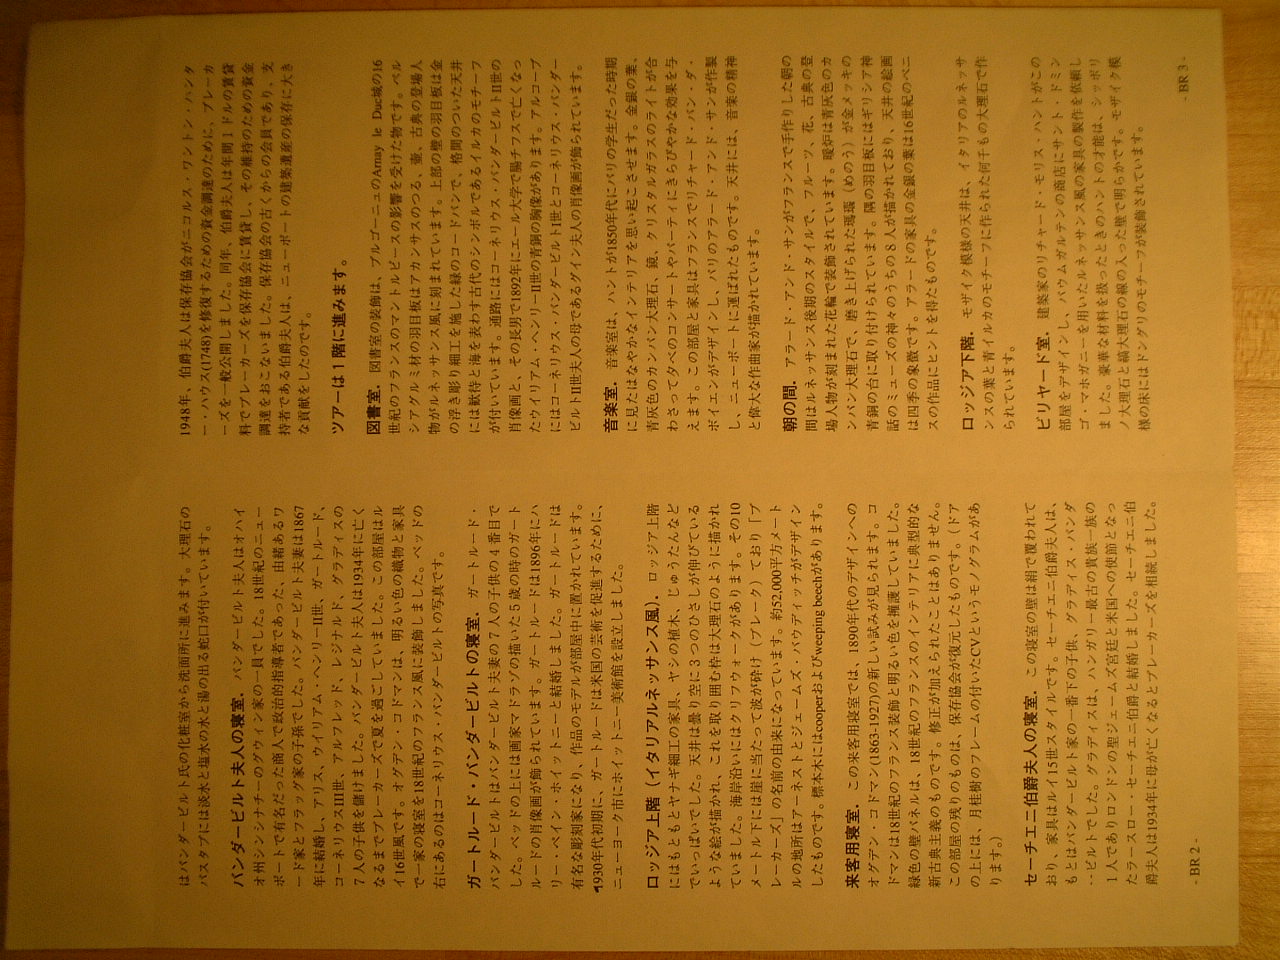 はバンダービルト氏の化粧室から洗面所に進みます。大理石の
バスタブには淡水と塩水の水と湯の出る蛇口が付いています。
バンダービルト夫人の寝室. バンダービルト夫人はオハイ
オ州シンシナチーのグウィン家の一員でした。18世紀のニュー
ポートで有名だった商人で政治的指導者であった、由緒あるワ
ード家とフラッグ家の子孫でした。バンダービルト夫妻は1867
年に結婚し、アリス、ウイリアム・ヘンリーII世、ガートルード、
コーネリウスIII世、アルフレッド、レジナルド、グラディスの
7人の子供を儲けました。バンダービルト夫人は1934年に亡く
なるまでブレーカーズで夏を過ごしていました。この部屋はル
イ16世風です。オグデン・コドマンは、明るい色の織物と家具
で一家の寝室を18世紀のフランス風に装飾しました。ベッドの
右にあるのはコーネリウス・バンダービルトの写真です。
ガートルード・バンダービルトの寝室. ガートルード・
バンダービルトはバンダービルト夫妻の7人の子供の4番目で
した。ベッドの上には画家マドラゾの描いた5歳の時のガート
ルードの肖像画が飾られています。ガートルードは1896年にハ
リー・ペイン・ホイットニーと結婚しました。ガートルードは
有名な彫刻家になり、作品のモデルが部屋中に置かれています。
1930年代初期に、ガートルードは米国の芸術を促進するために、
ニューヨーク市にホイットニー美術館を設立しました。
ロッジア上階 (イタリアルネッサンス風). ロッジア上階
にはもともとヤナギ細工の家具、ヤシの植木、じゅうたんなど
でいっぱいでした。天井は曇り空に3つのひさしが伸びている
ような絵が描かれ、これを取り囲む枠は大理石のように描かれ
ていました。海岸沿いにはクリフウォークがあります。その10
メートル下には崖に当たって波が砕け (ブレーク) ており「ブ
レーカーズ」の名前の由来になっています。約52,000平方メート
ルの地所はアーネストとジェームズ・バウディッチがデザイン
したものです。標本木にはcooperおよびweeping beechがあります。
来客用寝室. この来客用寝室では、1890年代のデザインへの
オグデン・コドマン(1863-1927)の新しい試みが見られます。コ
ドマンは18世紀のフランス装飾と明るい色を擁護していました。
緑色の壁パネルは、18世紀のフランスのインテリアに典型的な
新古典主義のものです。修正が加えられたことはありません。
この部屋の残りのものは、保存協会が復元したものです。(ドア
の上には、月桂樹のフレームの付いたCVというモノグラムがあ
ります。)
セーチェニ伯爵夫人の寝室. この寝室の壁は絹で覆われて
おり、家具はルイ15世スタイルです。セーチェニ伯爵夫人は、
もとはバンダービルト家の一番下の子供、グラディス・バンダ
ービルトでした。グラディスは、ハンガリー最古の貴族一族の
1人でありロンドンの聖ジェームズ宮廷と米国への使節となっ
たラースロー・セーチェニ伯爵と結婚しました。セーチェニ伯
爵夫人は1934年に母が亡くなるとブレーカーズを相続しました。
- BR 2 -
1948年、伯爵夫人は保存協会がニコルス・ワントン・ハンタ
ー・ハウス(1748)を修復するための資金調達のために、ブレーカ
ーズを一般公開しました。同年、伯爵夫人は年間1ドルの賃貸
料でブレーカーズを保存協会に賃貸し、その維持のための資金
調達をおこないました。保存協会の古くからの会員であり、支
持者である伯爵夫人は、ニューポートの建築遺産の保存に大き
な貢献をしたのです。
ツアーは1階に進みます。
図書室. 図書室の装飾は、ブルゴーニュのArnay le Duc城の16
世紀のフランスのマントルピースの影響を受けた物です。ベル
シアグルミ材の羽目板はアカンサスのつる、壷、古典の登場人
物がルネッサンス風に刻まれています。上部の壁の羽目板は金
の浮き彫り細工を施した緑のコードバンで、格間のついた天井
には歓待と海を表わす古代のシンボルであるイルカのモチーフ
が付いています。通路にはコーネリウス・バンダービルトII世の
肖像画と、その長男で1892年にエール大学で腸チフスで亡くなっ
たウイリアム・ヘンリーII世の青銅の胸像があります。アルコーブ
にはコーネリウス・バンダービルトI世とコーネリウス・バンダー
ビルトII世夫人の母であるグイン夫人の肖像画が飾られています。
音楽室. 音楽室は、ハントが1850年代にパリの学生だった時期
に見たはなやかなインテリアを思い起こさせます。金銀の葉、
青灰色のカンパン大理石、鏡、クリスタルガラスのライトが合
わさって夕べのコンサートやパーティにきらびやかな効果を与
えます。この部屋と家具はフランスでリチャード・バン・ダ・
ボイエンがデザインし、パリのアラード・アンド・サンが作製
し、ニューポートに運ばれたものです。天井には、音楽の精神
と偉大な作曲家が描かれています。
朝の間. アラード・アンド・サンがフランスで手作りした朝の
間はルネッサンス後期のスタイルで、フルーツ、花、古典の登
場人物が刻まれた花輪で装飾されています。暖炉は青灰色のカ
ンパン大理石で、磨き上げられた瑪瑙 (めのう) が金メッキの
青銅の台に取り付けられています。隅の羽目板にはギリシア神
話のミューズの神々のうちの8人が描かれており、天井の絵画
は四季の象徴です。アラードの家具の金銀の葉は16世紀のベニ
スの作品にヒントを得たものです。
ロッジア下階. モザイク模様の天井は、イタリアのルネッサ
ンスの葉と青イルカのモチーフに作られた何千もの大理石で作
られています。
ビリヤード室. 建築家のリチャード・モリス・ハントがこの
部屋をデザインし、バウムガルテンの商店にサント・ドミン
ゴ・マホガニーを用いたルネッサンス風の家具の製作を依頼し
ました。豪華な材料を扱ったときのハントの才能は、シッポリ
ノ大理石と縞大理石の線の入った壁で明らかです。モザイク模
様の床にはドングリのモチーフが装飾されています。
- BR 3 -